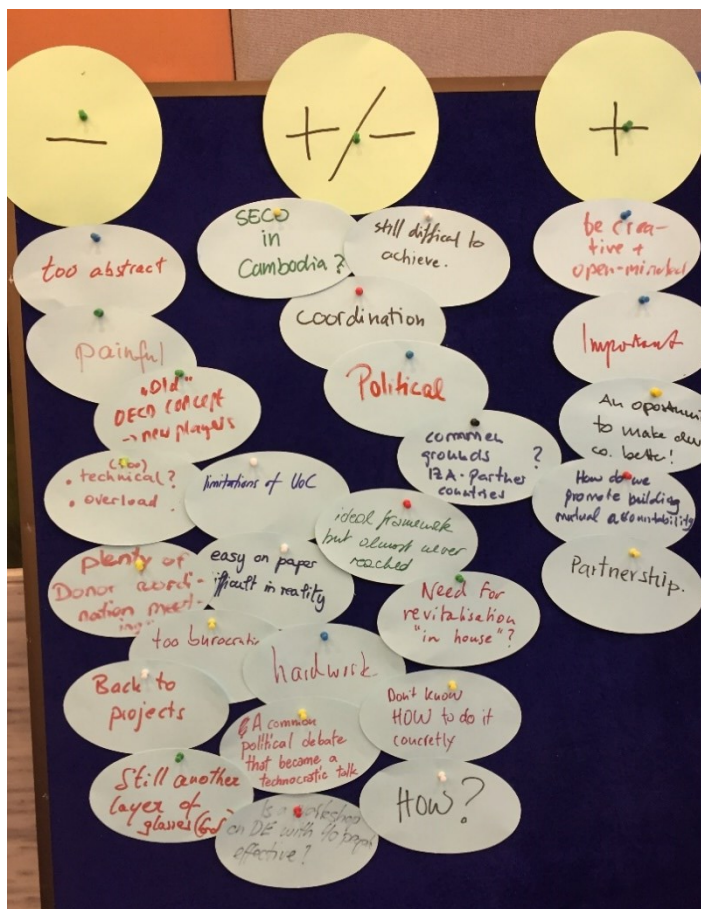 —
+/-
+
too abstract
painful
"Old"
OECD CONCEPT
→ new players
(too)
• technical?
• overload
plenty of
Donor coordi-
nation meet-
ing"
too burocratic
Back to
projects
Still another
layer of
glasses
SECO
in
Cambodia?
still diffical to
achieve.
coordination
Political
common
grounds ?
IZA - Partner
countries
limitations of UoC
ideal framework
but almost never
reached
easy on paper
difficult in reality
Need for
revitalisation
"in house"?
hardwork
A common
political debate
that became a
technocratic talk
Don't know
HOW to do it
concretly
Is a workshop
on DE with 40 people
effective?
HOW?
be crea-
tive +
open-minded
Important
An
to make
co. better!
How do we
promote building
mutual
Partnership.